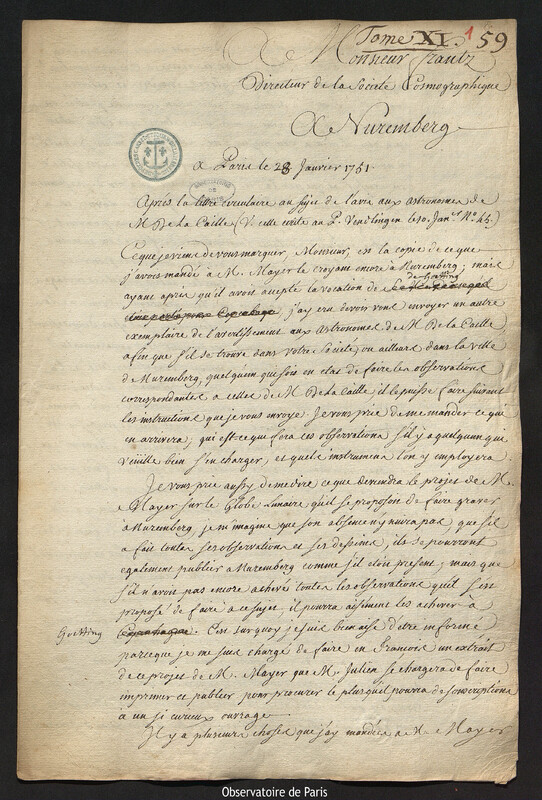 Tome XI. 1 59
A Monsieur frantz
Directeur de la Societé Cosmographique
A Nuremberg
a Paris le 28 Janvier 1751.
Après la lettre circulaire au sujet de l'avis aux astronomes de
M De la Caille (V. celle ecrite au P. Vendlingen le 10. Janv.er N.o 45.)
Ce que je viens de vous marquer, Monsieur, est la copie de ce que
j'avois mandé à M. Mayer le croyant encore à Nuremberg; mais
de Goetting
ayant apris qu'il avoit accepté la vocation de
j'ay cru devoir vous envoyer un autre
exemplaire de l'avertissement aux astronomes de M De la Caille
afin que s'il se trouve dans votre Societé, ou ailleurs dans la ville
de Nuremberg, quelqu'un qui soit en etat de faire les observations
correspondantes a celles de M De la Caille, il le puisse faire suivant
les instructions que je vous envoye. Je vous prie de me mander ce qui
en arrivera; qui est ce qui fera ces observations s'il y a quelqu'un qui
veüille bien s'en charger, et quels instrumens l'on y employera.
Je vous prie aussy de me dire ce que deviendra le projet de M.
Mayer sur le Globe Lunaire qu'il se proposoit de faire graver
à Nuremberg, je m'imagine que son absence n'y nuira pas, que s'il
a fait toutes ses observations et ses desseins, ils se pourront
egalement publier a Nuremberg comme s'il etoit present; mais que
s'il n'avoit pas encore achevé toutes les observations qu'il s'est
proposé de faire a ce sujet, il pourra aisement les achever à
Goetting Copenhague. C'est sur quoy je suis bien aise d'etre informé
parceque je me suis chargé de faire en francois un extrait
de ce projet de M. Mayer que M. Julien se chargera de faire
imprimer et publier pour procurer le plus qu'il pourra de souscriptions
a un si curieux ouvrage.
Il y a plusieurs choses que j'ay mandées a M. Mayer
Observatoire de Paris